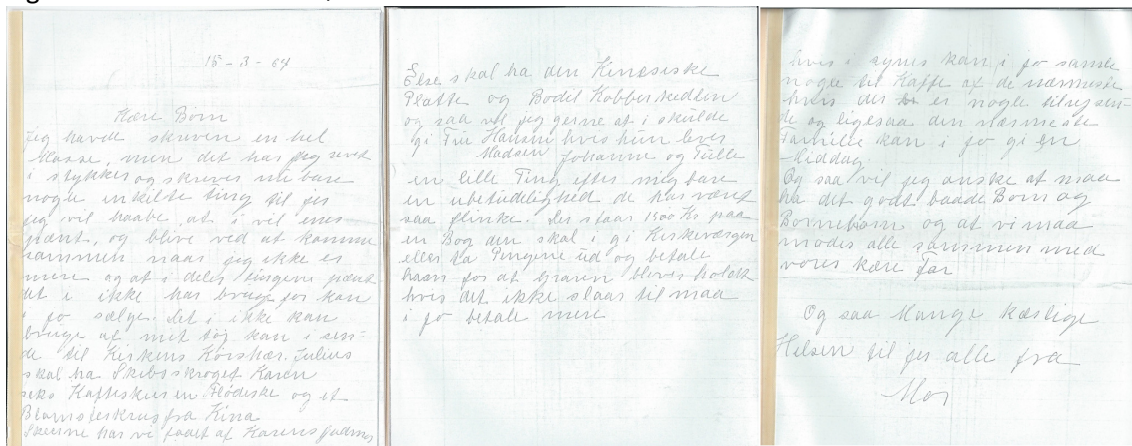 15-3-64
Kære Børn
Jeg havde skreven en hel
Masse, men det har jeg revet
i stykker og skrever nu bare
nogle enkelte ting til jer
jeg vil haabe at i vil enes
pænt, og blive ved at komme
sammen naar jeg ikke er
mere og at i deler tingene pænt
det i ikke har brug for kan
i jo sælge. det i ikke kan
bruge af mit tøj kan i sen-
de til Kirkens Korshær. Julius
skal ha Skibsskroget Karen
seks Kaffeskeer en Flødeske og et
Blomsterkrus fra Kina
Skeerne har vi faaet af Karens gudmor
Else skal ha den Kinesiske
Platte og Bodil Kobberkedlen
og saa vil jeg gerne at i skulde
gi Fru Hansen hvis hun lever
Madsen Johanne og Tulle
en lille Ting efter mig bare
en ubetydelighed de har været
saa flinke. der staar 1500 Kr paa
en Bog den skal i gi Kirkeværgen
eller ta Pengene ud og betale
ham for at Graven blever holdt
hvis det ikke slaar til maa
i jo betale mere
hvis i synes kan i jo samle
nogle til Kaffe af de nærmeste
hvis der er nogle tilrejsen-
de og ligesaa den næsmeste
Familie kan i jo gi en
Middag.
Og saa vil jeg ønske at maa
ha det godt baade Børn og
Børnebørn og at vi maa
mødes alle sammen med
vores kære Far
Og saa Mange Kærlige
Hilsen til jer alle fra
Mor